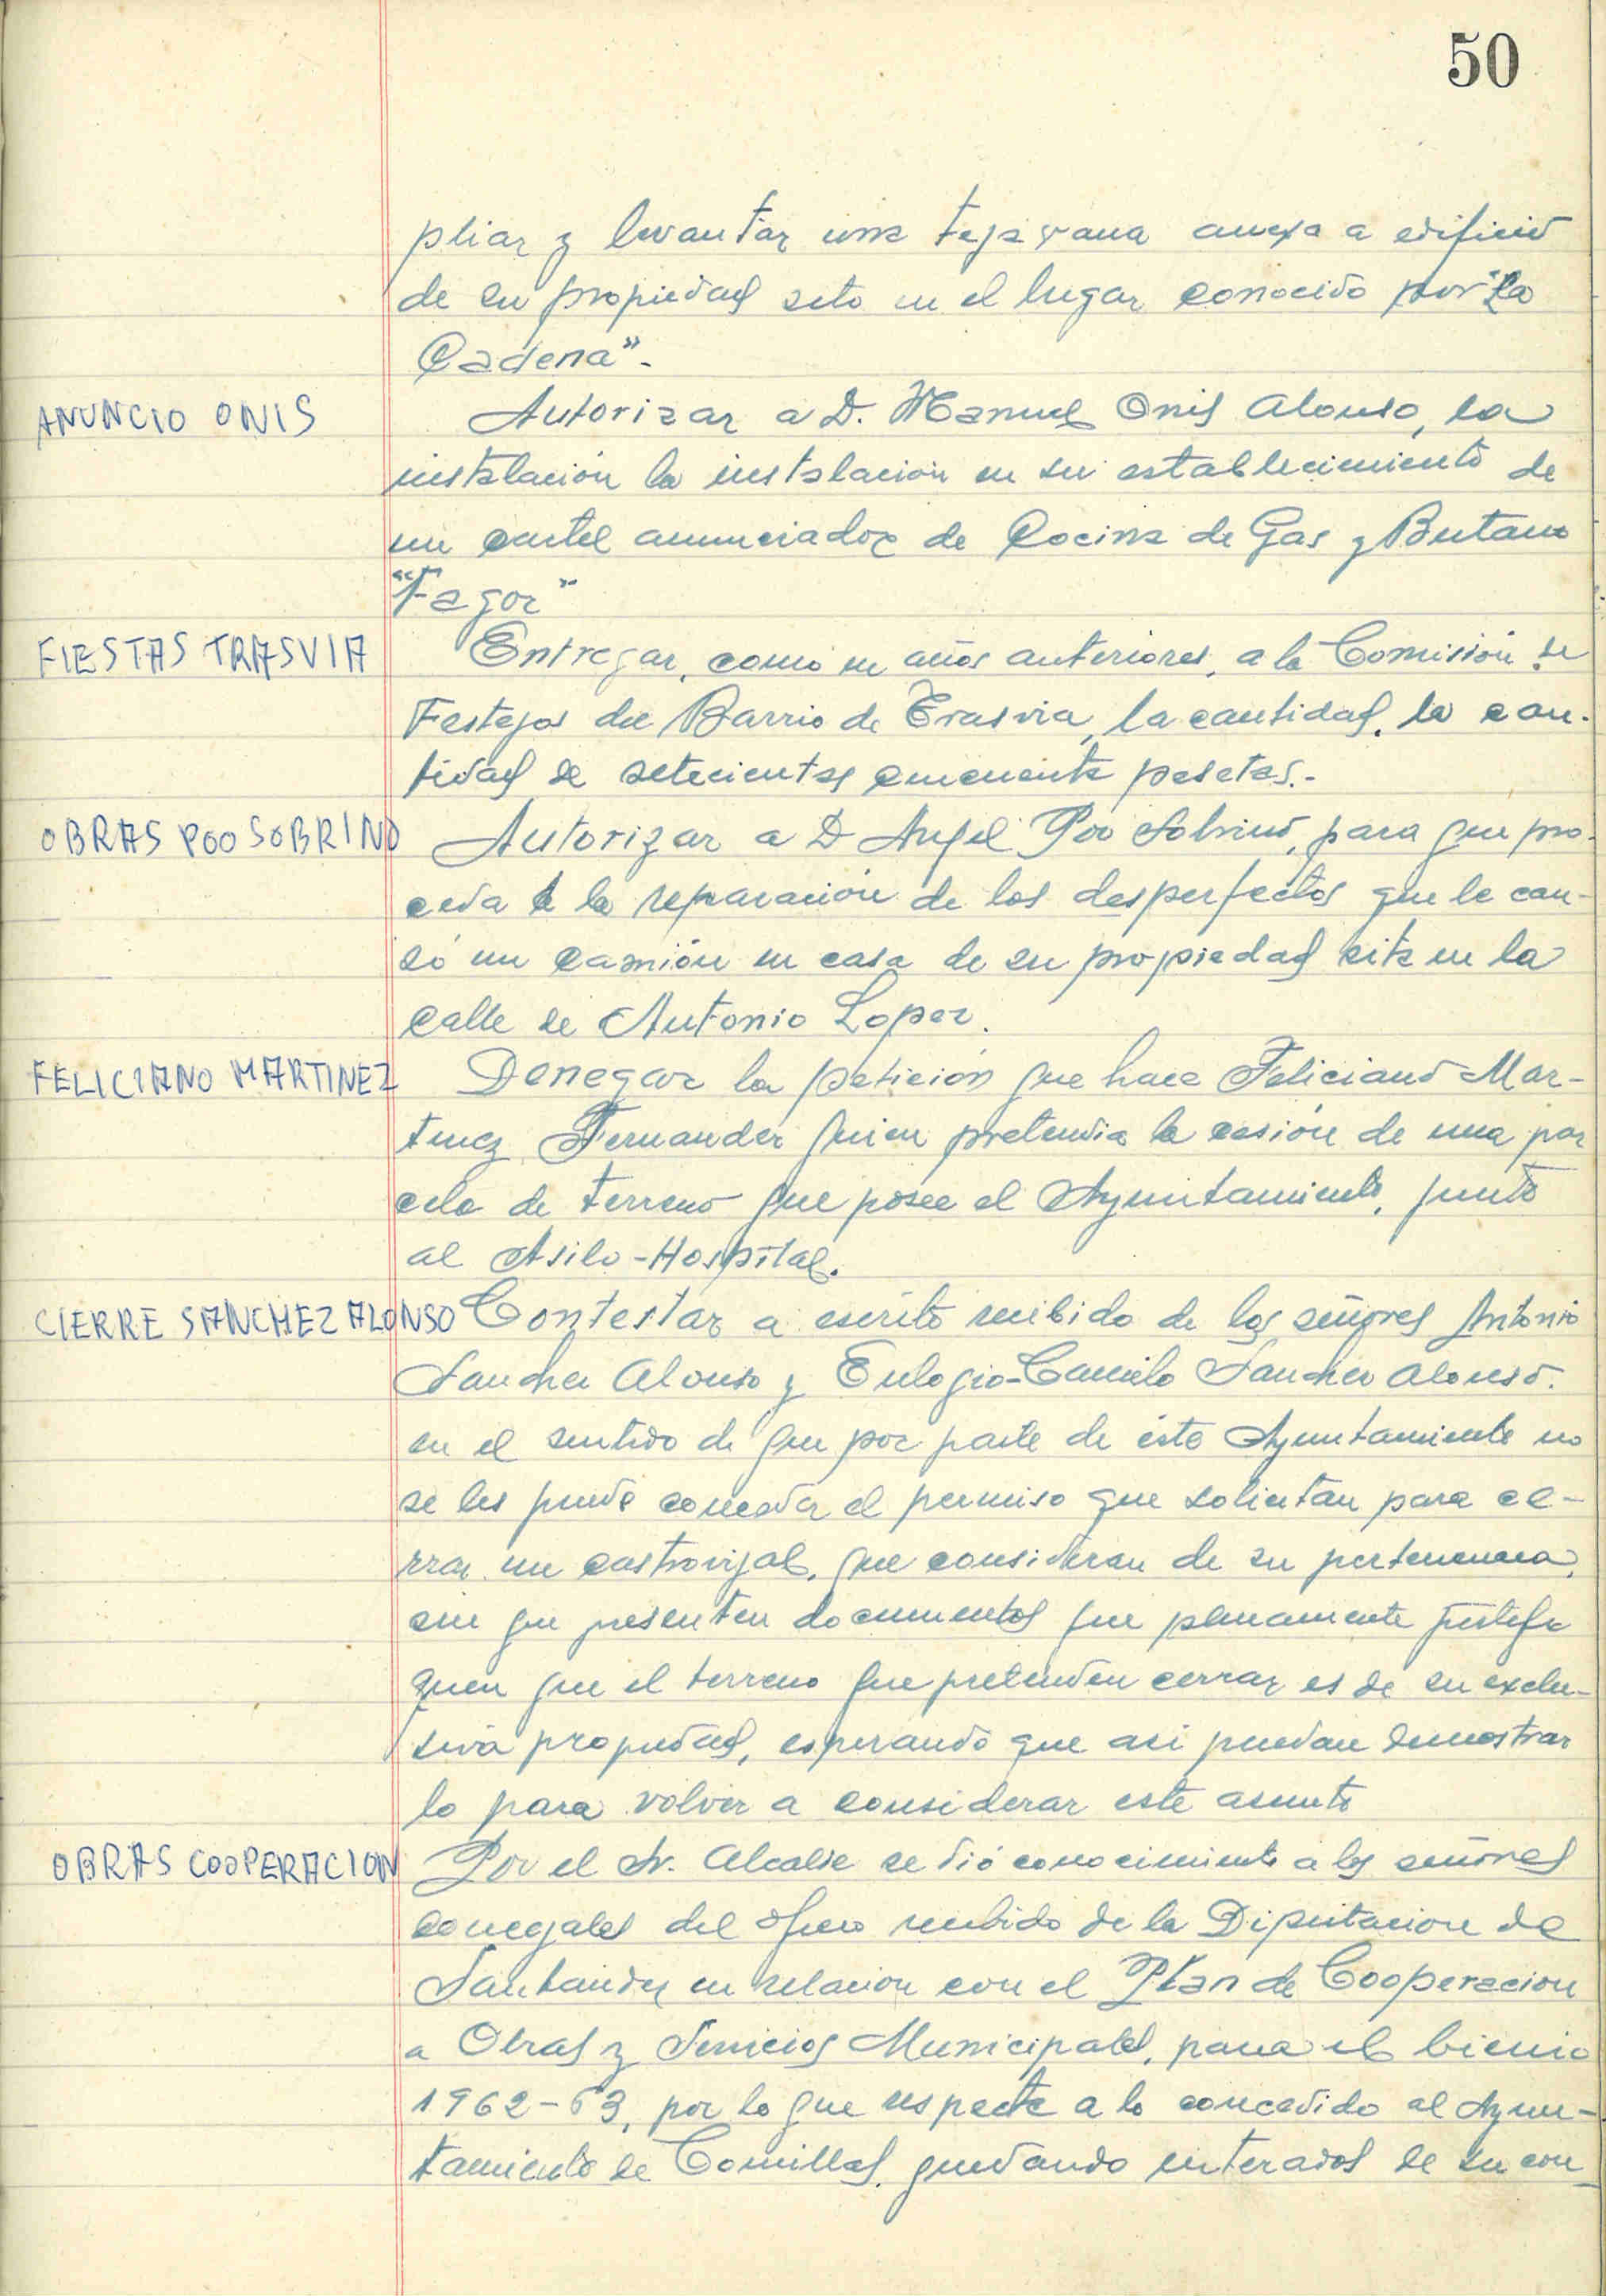 50
pliar y levantar una tejavana anexa a edificio
de su propiedad sito en el lugar conocido por "La
Cadena".-
ANUNCIO ONIS
Autorizar a D. Manuel Onis Alonso, la
instalación la instalación en su establecimiento de
un cartel anunciador de Cocina de Gas y Butano
"Fagor"
FIESTAS TRASVIA
Entregar, como en años anteriores, a la Comisión de
Festejos del Barrio de Trasvia, la cantidad, la can-
tidad de setecientas cincuenta pesetas.-
OBRAS POO SOBRINO
Autorizar a D Angel Poo Sobrino, para que pro-
ceda a la reparación de los desperfectos que le cau-
só un camión en casa de su propiedad sita en la
calle de Antonio Lopez.
FELICIANO MARTINEZ
Denegar la petición que hace Feliciano Mar-
tinez Fernandez quien pretendia la cesión de una par
cela de terreno que posee el Ayuntamiento, junto
al Asilo-Hospital.
CIERRE SANCHEZ ALONSO
Contestar a escrito recibido de los señores Antonio
Sanchez Alonso y Eulogio-Camilo Sanchez Alonso.
en el sentido de que por parte de éste Ayuntamiento no
se les puede conceder el permiso que solicitan para ce-
rrar un castrovijal, que consideran de su pertenencia,
sin que presenten documentos que plenamente justifi
quen que el terreno que pretenden cerrar es de su exclu-
siva propiedad, esperando que asi puedan demostrar
lo para volver a considerar este asunto
OBRAS COOPERACION
Por el Sr. Alcalde se dió conocimiento a los señores
concejales del oficio recibido de la Diputacion de
Santander en relacion con el Plan de Cooperacion
a Obras y Servicios Municipales, para el bienio
1962-63, por lo que respecta a lo concedido al Ayun-
tamiento de Comillas, quedando enterados de su con_